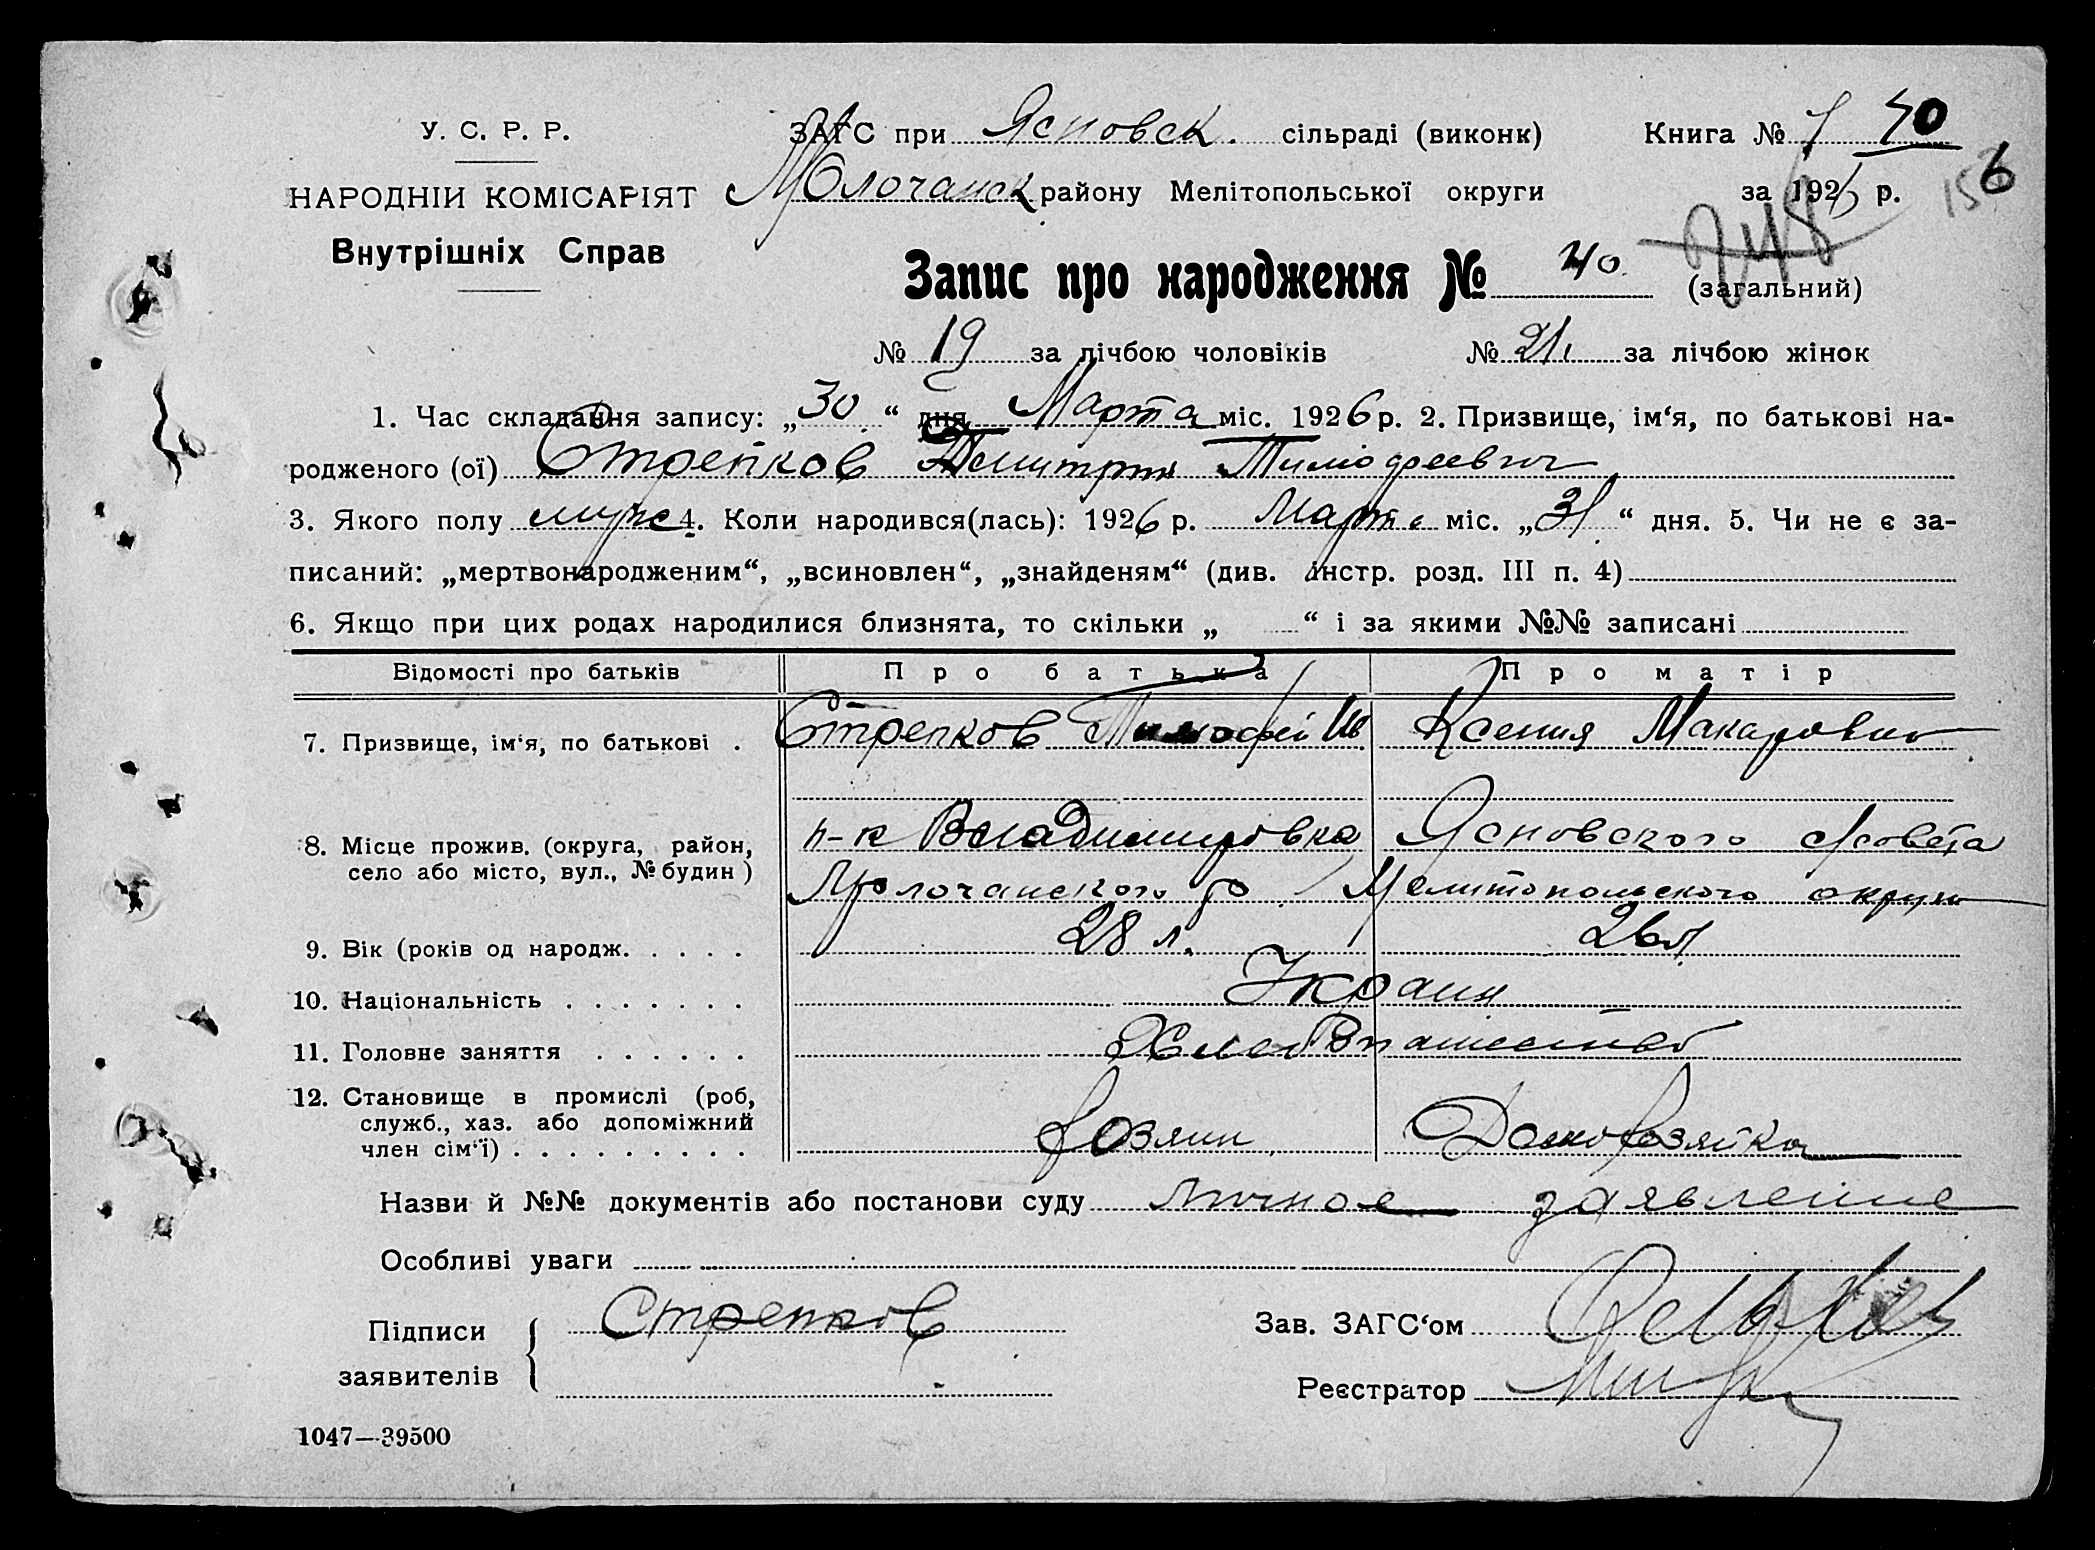 У. С. Р. Р.
НАРОДНІЙ КОМІСАРІЯТ
Внутрішніх Справ
ЗАГС при Ясновск. сільраді (виконк) Книга № 1 40
Молочанск району Мелітопольської округи за 1926 р. 156
Запис про народження № 40 (загальний)
№ 19 за лічбою чоловіків № 21 за лічбою жінок
1. Час складання запису: „30“ дня Марта міс. 1926 р. 2. Призвище, ім‘я, по батькові на-
родженого (ої) Стрепков Дмитрий Тимофеевич
3. Якого полу муж 4. Коли народився(лась): 1926 р. Марта міс. „31“ дня. 5. Чи не є за-
писаний: „мертвонародженим“, „всиновлен“, „знайденям“ (див. інстр. розд. III п. 4)
6. Якщо при цих родах народилися близнята, то скільки „ “ і за якими №№ записані
Відомості про батьків Про батька Про матір
7. Призвище, ім‘я, по батькові . Стрепков Тимофей Ив Ксения Макаровна
8. Місце прожив. (округа, район, п-к Владимировка Ясновского с/совета
село або місто, вул., № будин ) Молочанского р-о Мелитопольского округа
9. Вік (років од народж. . . . . 28 л. 26 л
10. Національність . . . . . . . Украин
11. Головне заняття . . . . . . Хлебопашество
12. Становище в промислі (роб,
служб., хаз. або допоміжний
член сім‘ї) . . . . . . . . . хозяин Домохозяйка
Назви й №№ документів або постанови суду личное заявление
Особливі уваги
Підписи Стрепков Зав. ЗАГС‘ом
заявителів Реєстратор
1047—39500